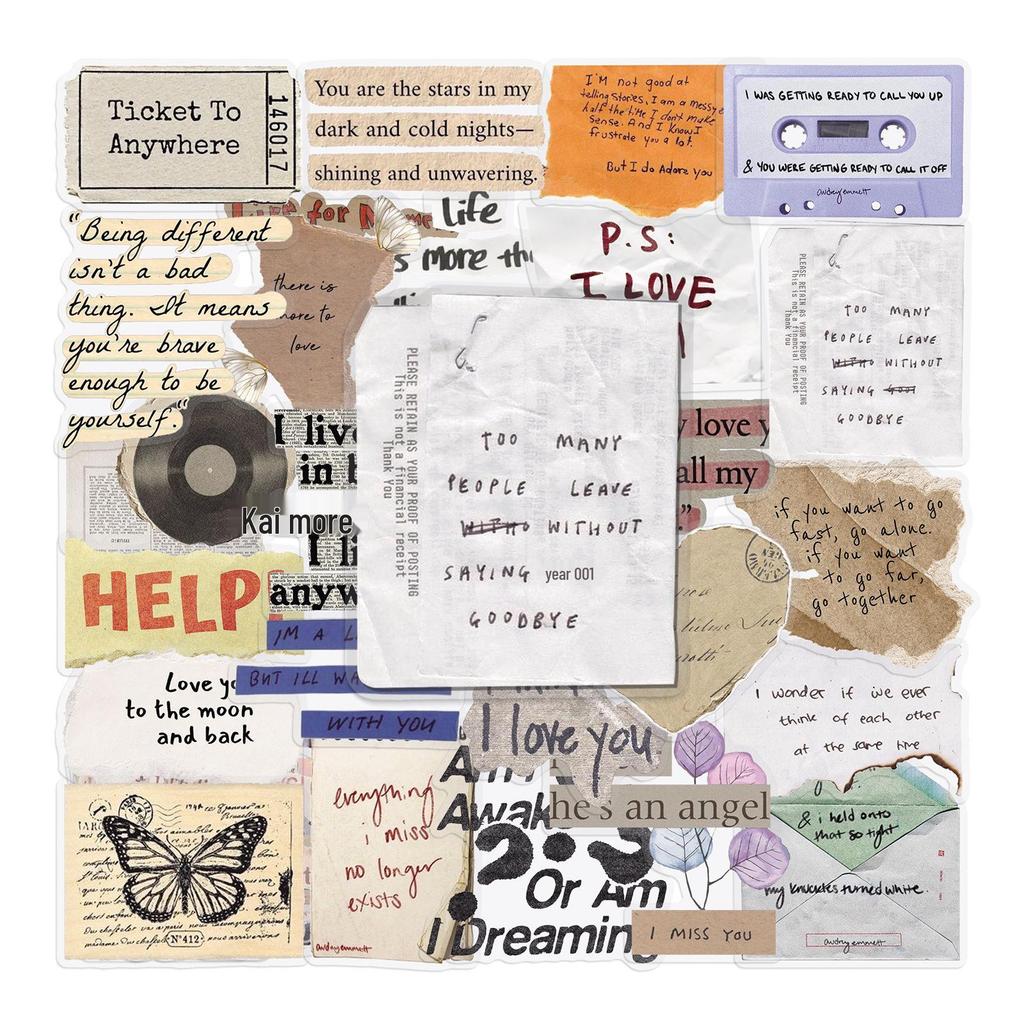 Ticket To
Anywhere
146017
You are the stars in my
dark and cold nights—
shining and unwavering.
I'm not good at
telling stories, I am a messy &
half the time I don't make
sense. And I know I
frustrate you a lot.
But I do Adore you
I WAS GETTING READY TO CALL YOU UP
& YOU WERE GETTING READY TO CALL IT OFF
audreyemmett
"Being different
isn't a bad
thing. It means
you're brave
enough to be
yourself."
for
Life
more
there is
more to
love
P.S:
I LOVE
PLEASE RETAIN AS YOUR PROOF OF POSTING
This is not a financial receipt
Thank You
TOO MANY
PEOPLE LEAVE
WITHO WITHOUT
SAYING GOOD
GOODBYE
PLEASE RETAIN AS YOUR PROOF OF POSTING
This is not a financial receipt
Thank You
TOO MANY
PEOPLE LEAVE
WITHO WITHOUT
SAYING year 001
GOODBYE
I live
in
Kai more
I li
anyw
love y
all my
"
if you want to go
fast, go alone.
if you want
to go far,
go together
HELP!
I'M A L
BUT ILL WA
WITH YOU
Love yo
to the moon
and back
I love you.
I wonder if we ever
think of each other
at the same time
everything
i miss
no longer
exists
audreyemmett
Am I
Awak
he's an angel
Or Am
I Dreaming
I MISS YOU
& i held onto
that so tight
my knuckles turned white.
audreyemmett
Nº412